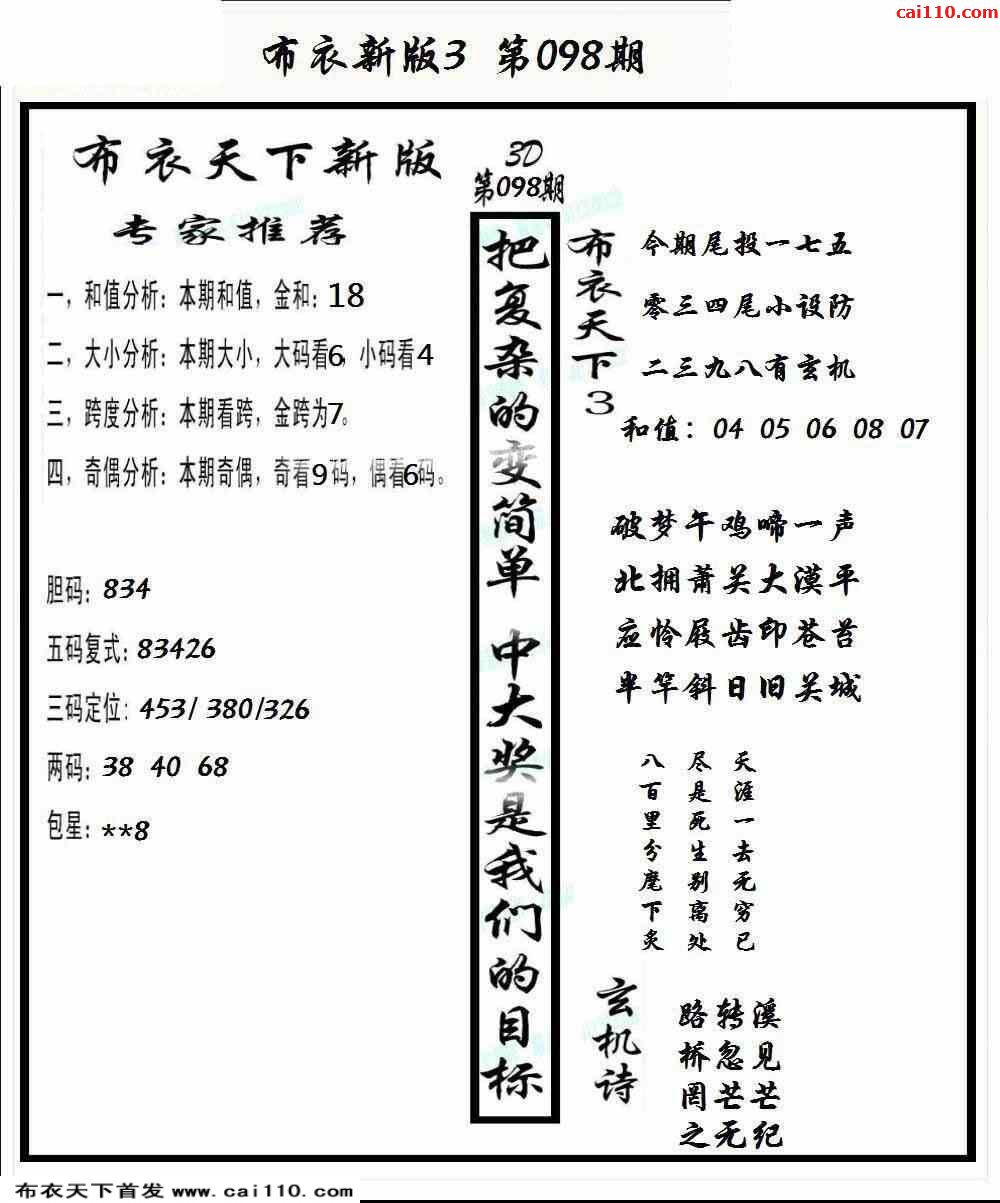 cai110.com
布衣新版3 第098期
布衣天下新版
专家推荐
一，和值分析：本期和值，金和：18
二，大小分析：本期大小，大码看6，小码看4
三，跨度分析：本期看跨，金跨为7。
四，奇偶分析：本期奇偶，奇看9码，偶看6码。
胆码：834
五码复式：83426
三码定位：453/ 380/326
两码：38 40 68
包星：**8
3D
第098期
把复杂的变简单 中大奖是我们的目标
布衣天下3
今期尾投一七五
零三四尾小设防
二三九八有玄机
和值：04 05 06 08 07
破梦午鸡啼一声
北拥萧关大漠平
应怜屐齿印苍苔
半竿斜日旧关城
天涯一去无穷已
尽是死生别离处
八百里分麾下炙
玄机诗
路转溪
桥忽见
罔芒芒
之无纪
布衣天下首发 www.cai110.com